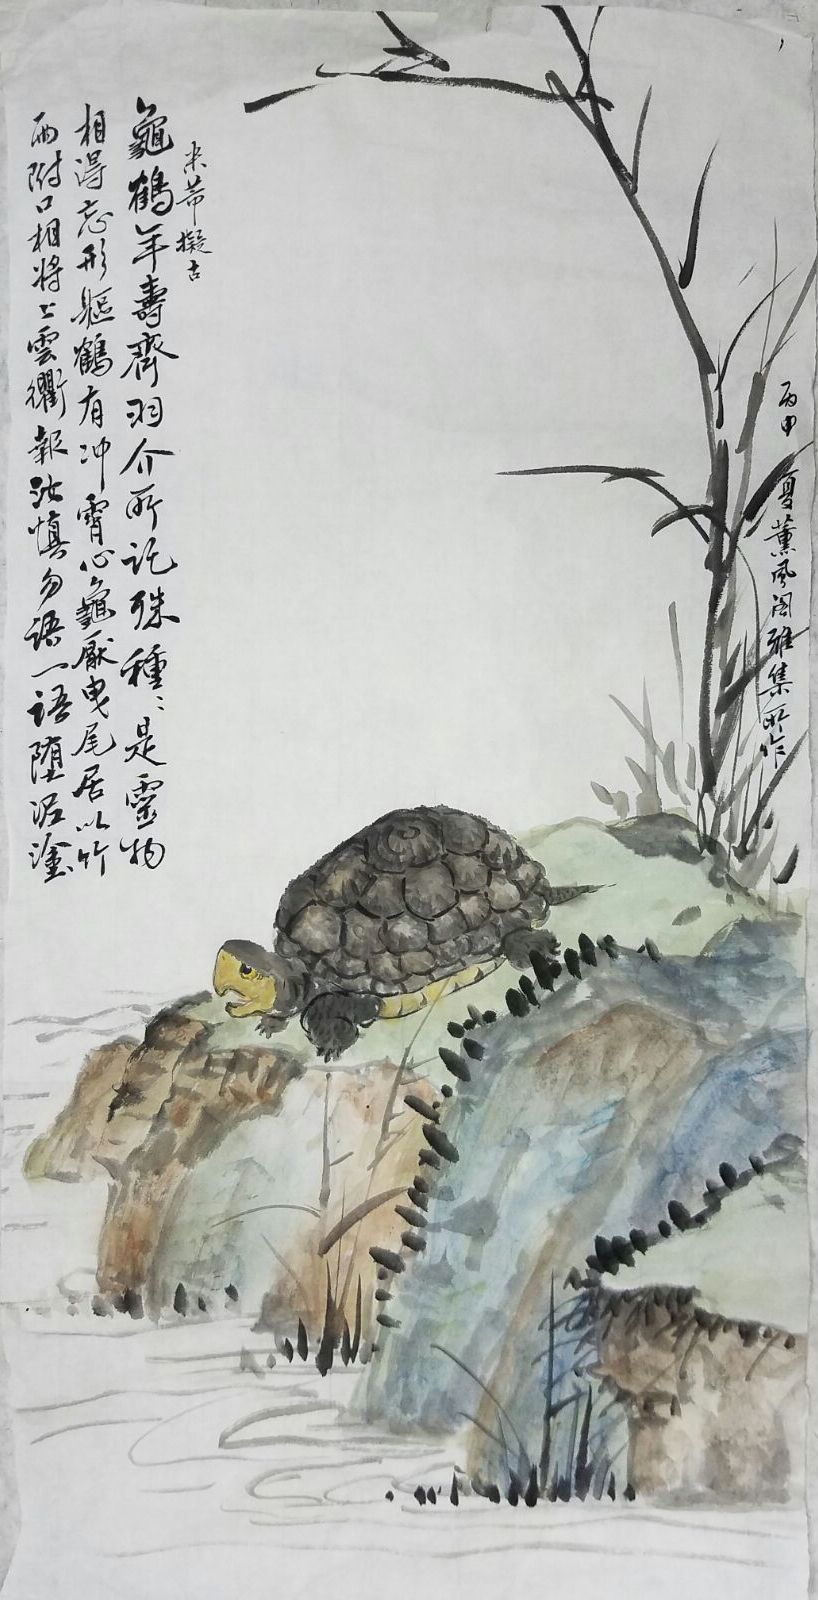 米芾擬古
龜鶴年壽齊羽介所託殊種〻是靈物
相得忘形軀鶴有冲霄心龜厭曳尾居以竹
兩附口相將上雲衢報汝慎勿語一語墮泥塗
丙申夏薰風阁雅集所作